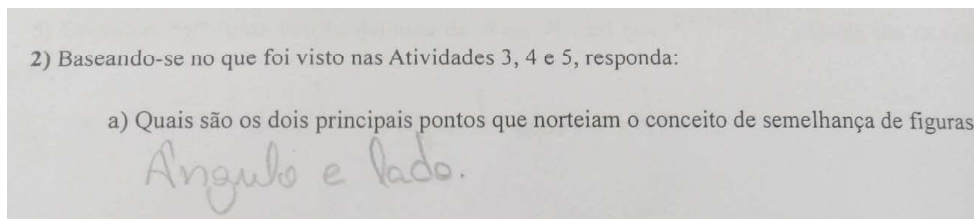 2) Baseando-se no que foi visto nas Atividades 3, 4 e 5, responda:
a) Quais são os dois principais pontos que norteiam o conceito de semelhança de figuras
Ângulo e lado.